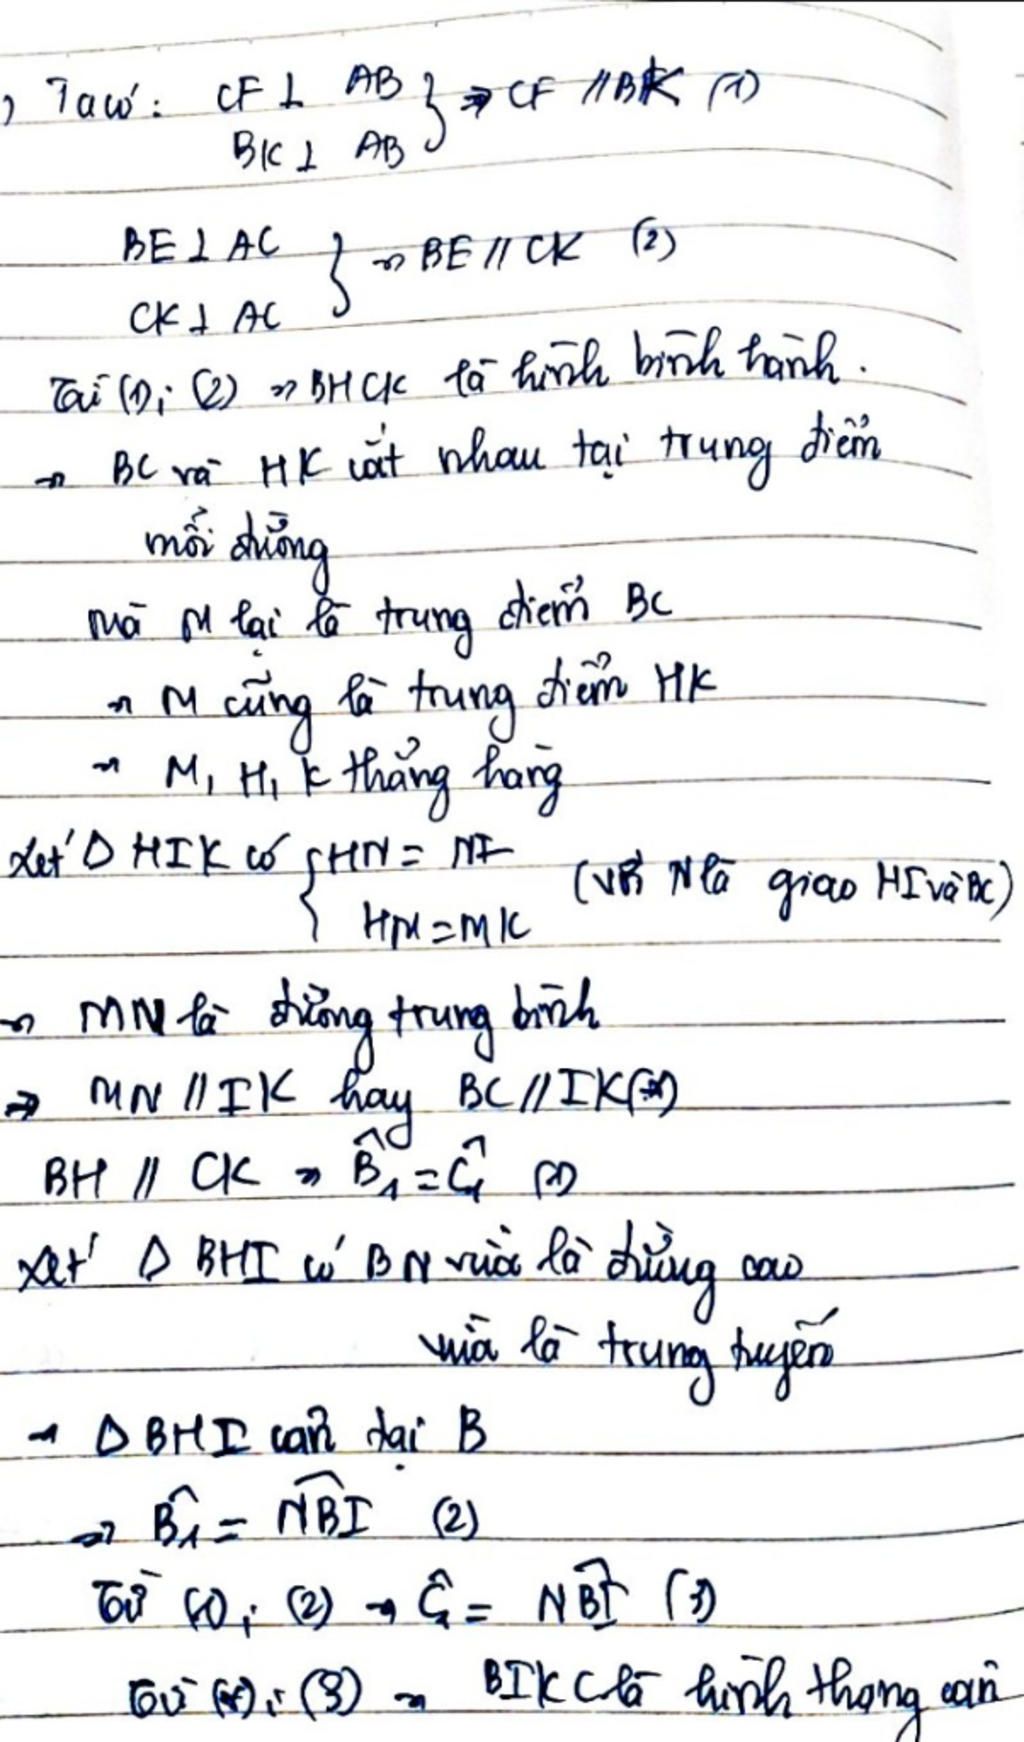 ) Ta có: CF ⊥ AB } ⇒ CF // BK (1)
BK ⊥ AB
BE ⊥ AC } ⇒ BE // CK (2)
CK ⊥ AC
Từ (1); (2) ⇒ BHCK là hình bình hành.
⇒ BC và HK cắt nhau tại trung điểm
mỗi đường
Mà M lại là trung điểm BC
⇒ M cũng là trung điểm HK
⇒ M, H, K thẳng hàng
Xét Δ HIK có { HN = NI (Vì N là giao HI và BC)
HM = MK
⇒ MN là đường trung bình
⇒ MN // IK hay BC // IK (*)
BH // CK ⇒ B̂₁ = Ĉ₁ (1)
Xét Δ BHI có BN vừa là đường cao
vừa là trung tuyến
⇒ Δ BHI cân tại B
⇒ B̂₁ = N̂BI (2)
Từ (1); (2) ⇒ Ĉ₁ = N̂BI (3)
Từ (*); (3) ⇒ BIKC là hình thang cân